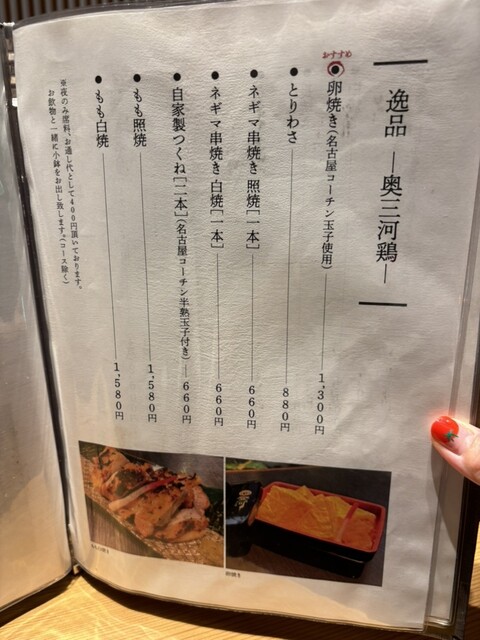 逸品 ―奥三河鶏―
おすすめ
卵焼き(名古屋コーチン玉子使用) 1,300円
●とりわさ 880円
●ネギマ串焼き 照焼[一本] 660円
●ネギマ串焼き 白焼[一本] 660円
●自家製つくね[二本](名古屋コーチン半熟玉子付き) 660円
●もも照焼 1,580円
●もも白焼 1,580円
※夜のみ席料、お通し代として400円頂いております。
お飲物と一緒に小鉢をお出し致します。(コース除く)
卵焼き